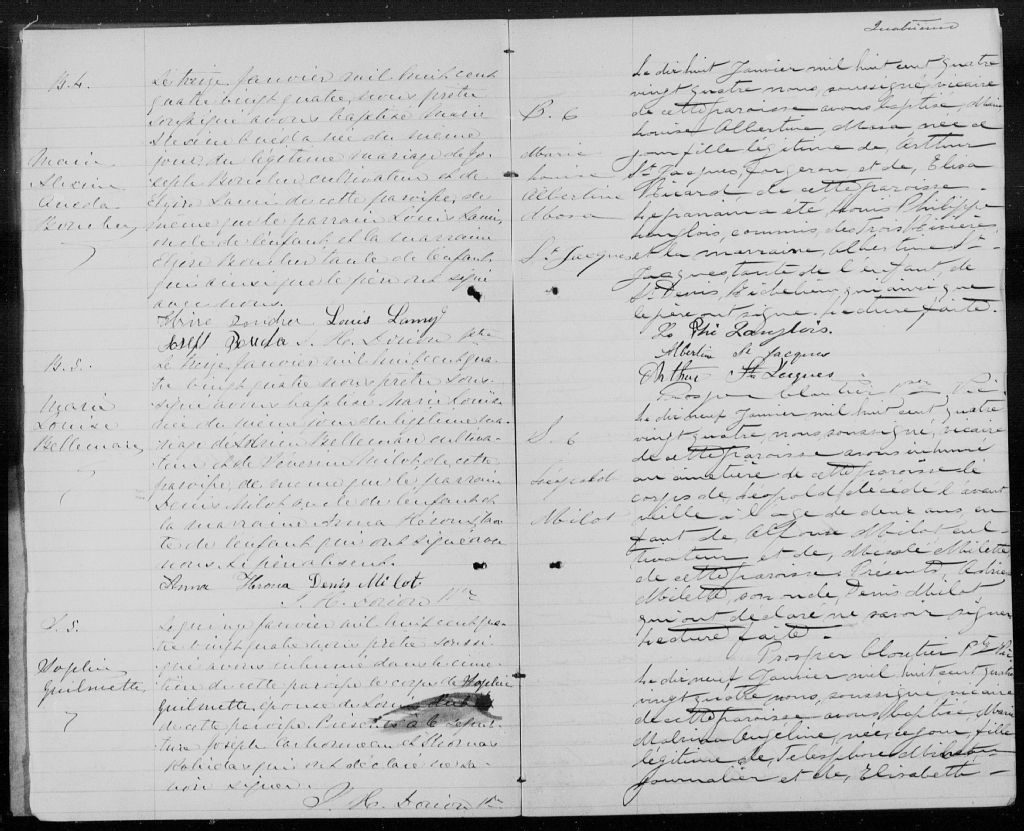 B. 4.
Marie
Alexina
Boucher
Le treize Janvier mil huit cent
quatre vingt quatre, nous prêtre
soussigné avons baptisé Marie
née du même
jour, du légitime mariage de Jo-
seph Boucher cultivateur et de
Elzire Lami de cette paroisse, de
même que le parrain Louis Lami,
oncle de l'enfant et la marraine
Elzire Boucher tante de l'enfant
qui ainsi que le père ont signé
avec nous.
Louis Lamy
J. H. Dorion ptre
B. 5.
Marie
Louise
Belleman
Le treize Janvier mil huit cent qua-
tre vingt quatre nous prêtre sous-
signé avons baptisé Marie Louise
née du même jour du légitime ma-
riage de Belleman cultiva-
teur et de Séverine Milot, de cette
paroisse, de même que le parrain
Denis Milot oncle de l'enfant et
la marraine Anna Héroux, tan-
te de l'enfant qui ont signé avec
nous. Le père absent.
Anna Heroux Denis Milot.
J. H. Dorion Ptre
S. 5.
Sophie
Guilmette
Le quinze Janvier mil huit cent qua-
tre vingt quatre nous prêtre soussi-
gné avons inhumé dans le cime-
tière de cette paroisse le corps de Sophie
Guilmette, épouse de
de cette paroisse. Présents à la sépul-
ture Joseph Carbonneau et Thomas
qui ont déclaré ne sa-
voir signer.
J. H. Dorion Ptre
Quatrième
B. 6
Marie
Louise
Albertine
Mosa
St Jacques
Le dixhuit Janvier mil huit cent quatre
vingt quatre nous, soussigné, vicaire
de cette paroisse avons baptisé, Marie
Louise Albertine, Mosa, née ce
jour fille légitime de, Arthur
St Jacques, forgeron et de, Elisa
de cette paroisse.
Le parrain a été, Louis Philippe
Langlois, commis, des trois Rivières
et la marraine, Albertine St
Jacques tante de l'enfant, de
St Denis, Richelieu, qui ainsi que
le père ont signé. Lecture faite.
Ls Phi Langlois.
Albertine St Jacques
Arthur St Jacques
Prosper Cloutier Ptre Vic
S. 6
Léopold
Milot
Le dixneuf Janvier mil huit cent quatre
vingt quatre, nous soussigné, vicaire
de cette paroisse avons inhumé
au cimetière de cette paroisse le
corps de, Léopold, décédé l'avant
veille à l'age de deux ans, en
fant de Alfonse Milot, cul
tivateur et de, Milette
de cette paroisse. Présents,
Milette, son oncle, Denis Milot
qui ont déclaré ne savoir signer
Lecture faite.
Prosper Cloutier Ptre Vic
Le dixneuf Janvier mil huit cent quatre
vingt quatre nous, soussigné vicaire
de cette paroisse avons baptisé Marie
Malvina Angéline, née, ce jour, fille
légitime de, Télesphore
journalier et de, Elisabeth